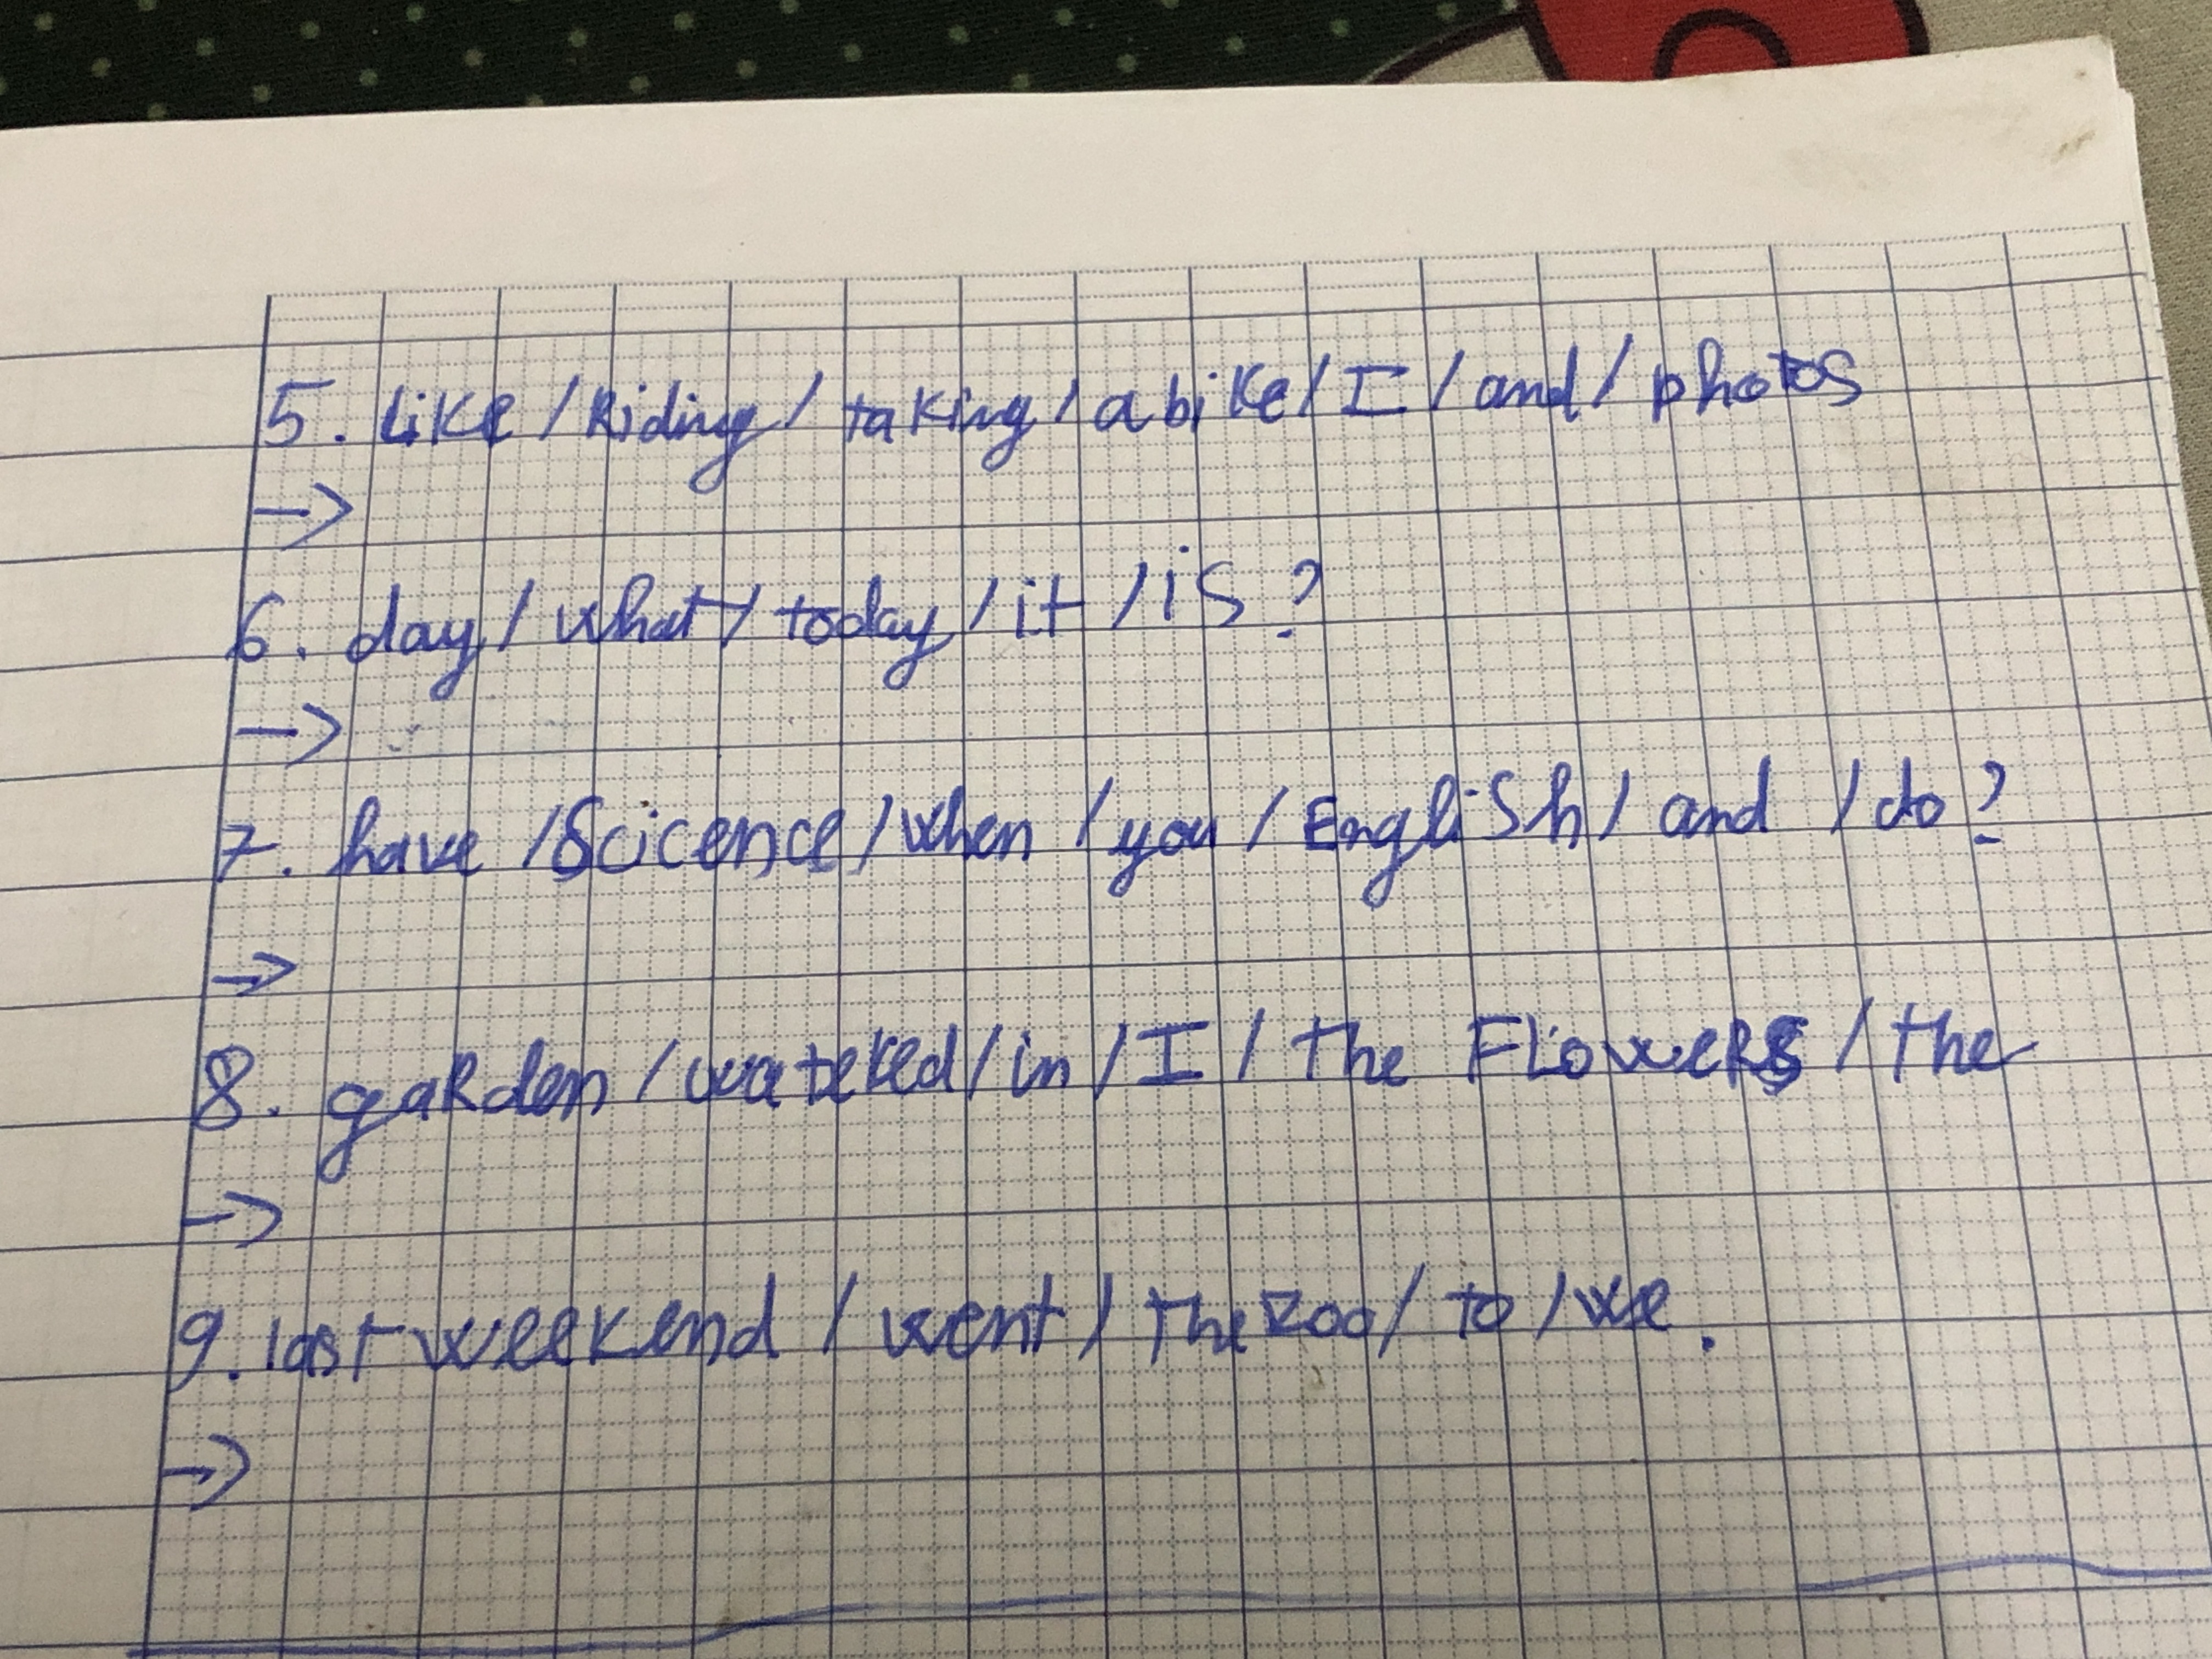 5. Like / Riding / taking / a bike / I / and / photos
→
6. day / what / today / it / is ?
→
7. have / Scicence / when / you / English / and / do ?
→
8. garden / watered / in / I / the Flowers / the
→
9. last weekend / went / the zoo / to / we .
→